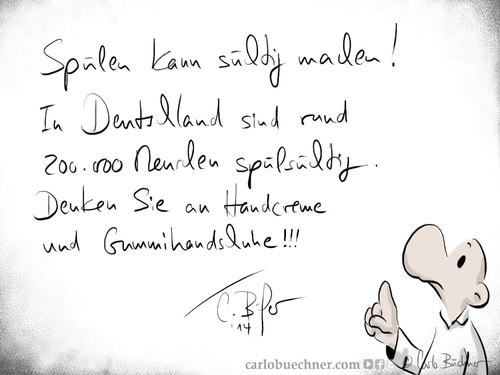 Spülen kann süchtig machen!
In Deutschland sind rund
200.000 Menschen spülsüchtig.
Denken Sie an Handcreme
und Gummihandschuhe!!!
'14
carlobuechner.com
© Carlo Büchner